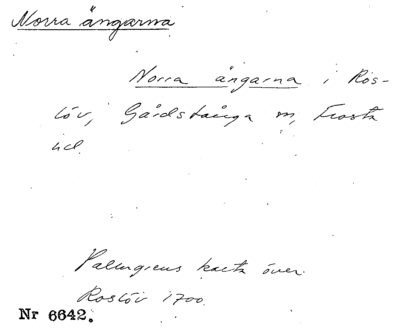 Norra ängarna
Norra ängarna i Rös-
töv, Gårdstånga sn, Frosta
hd.
karta över
Röstöv 1700.
Nr 6642.